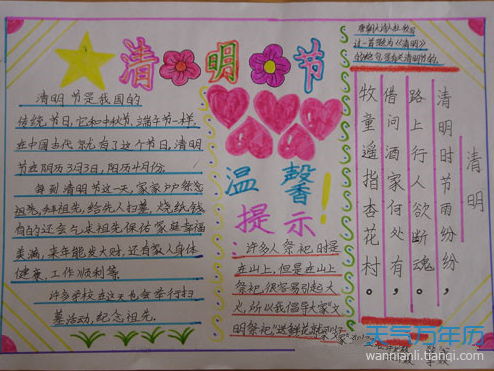 清明节
清明节是我国的
传统节日,它和中秋节、端午节一样,
在中国古代就有了这个节日,清明
节在阴历3月3日,阳历4月份。
每到清明节这一天,家家户户祭忽
祖先,拜祖先,给先人扫墓,烧纸钱,
有的还会乞求祖先保佑家庭幸福
美满,来年能发大财,还有家人身体
健康,工作顺利等
许多学校在这天也会举行扫
墓活动,纪念祖先。
温馨
提示!
许多人祭祀时是
在山上,但是在山上
祭祀,很容易引起大
火,所以我倡导大家"文
明祭祀,"送鲜花
的绝句
清明
清明时节雨纷纷,
路上行人欲断魂。
借问酒家何处有,
牧童遥指杏花村。
天气万年历
wannianli.tianqi.com